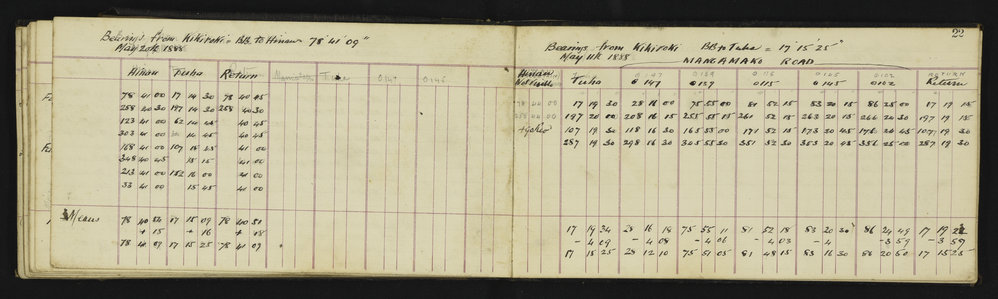 Bearings from Kikiroki = BB to Hinau 78° 41' 09"
May 20th 1888
Hinau Tuha Return 0147 0146
78 41 00 17 14 30 78 40 45
258 40 30 197 14 30 258 40 30
123 41 00 62 14 45 40 45
303 41 00 14 45 40 45
168 41 00 107 15 15 41 00
348 40 45 15 15 41 00
213 41 00 152 16 00 41 00
33 41 00 15 45 41 00
Means 78 40 54 17 15 09 78 40 51
+ 15 + 16 + 18
78 41 09 17 15 25 78 41 09
22
Bearings from Kikiroki BB to Tuha = 17° 15' 25"
May 11th 1888
MANGAMAKO ROAD
0147 0139 0115 0145 0102 RETURN
Hinau Not Visible Tuha 0147 0139 0115 0145 0102 Return
78 40 00 17 19 30 28 16 00 75 55 00 81 52 15 83 20 15 86 25 00 17 19 15
197 20 00 208 16 15 255 55 15 261 52 15 263 20 15 266 24 30 197 19 15
107 19 30 118 16 30 165 55 00 171 52 15 173 20 45 176 24 45 107 19 30
287 19 30 298 16 30 345 55 30 351 52 30 353 20 45 356 25 00 287 19 30
17 19 34 28 16 18 75 55 11 81 52 18 83 20 30 86 24 49 17 19 22
- 4 09 - 4 08 - 4 06 - 4 03 - 4 - 3 59 - 3 57
17 15 25 28 12 10 75 51 05 81 48 15 83 16 30 86 20 50 17 15 25